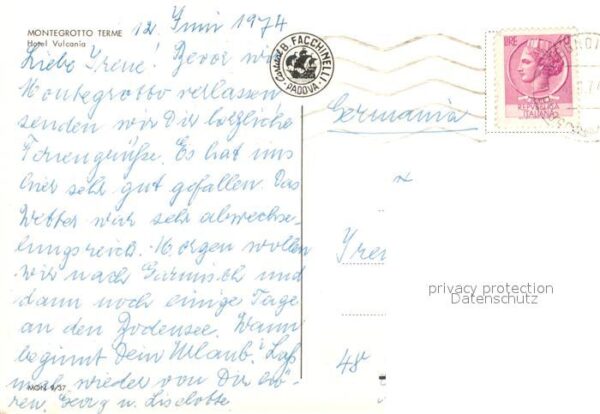 MONTEGROTTO TERME
Hotel Vulcania
12 Juni 1974
Liebe Irene! Bevor wir
Montegrotto verlassen
senden wir Dir herzliche
Feriengrüße. Es hat uns
hier sehr gut gefallen. Das
Wetter war sehr abwechse-
lungsreich. Morgen wollen
wir nach Garmisch und
dann noch einige Tage
an den Bodensee. Wann
beginnt Dein Urlaub? Laß
mal wieder von Dir hö-
ren. Georg u. Liselotte
9/37
B. FACCHINELLI
PADOVA
Germania
LIRE
REPUBBLICA
ITALIANA
Iren
48
privacy protection
Datenschutz